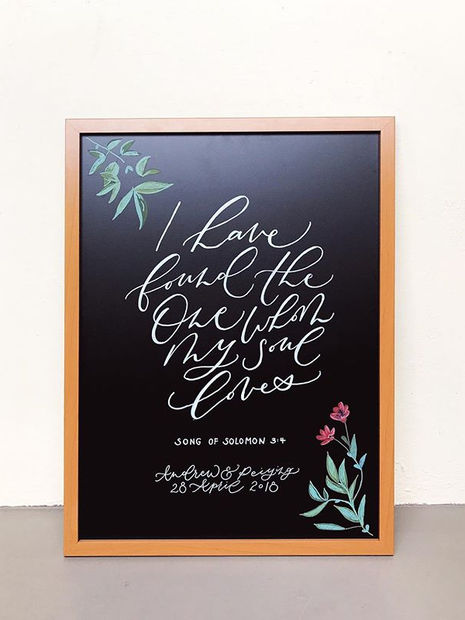 I have
found the
One whom
my soul
loves
SONG OF SOLOMON 3:4
Andrew & Peiying
28 April 2018